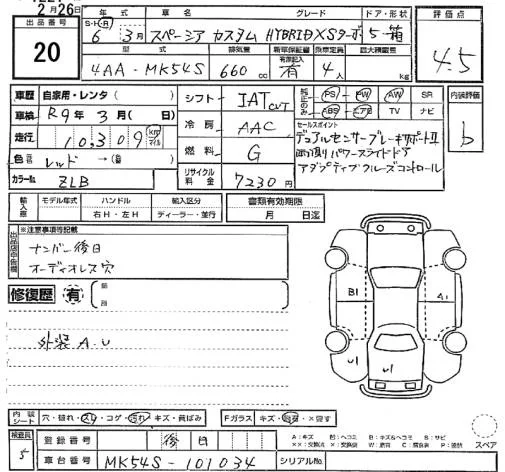 2月26日
出品番号
20
年式 車名 グレード ドア・形状
S・H・R 6年3月 スペーシア カスタム HYBRID XSターボ 5 箱
型式 排気量 新車保証書 乗車定員 最大積載量
4AA-MK54S 660cc 有 4人 kg
評価点
4.5
車歴 自家用・レンタ
車検 R9年3月(日)
走行 10,309 km マイル
色 レッド →(色)
カラーNo. ZLB
シフト IAT CVT
冷房 AAC
燃料 G
リサイクル料金 7230円
純正のみ PS PW AW SR
ABS エアB TV ナビ
セールスポイント
デュアルセンサーブレーキサポートⅡ
両側パワースライドドア
アダプティブクルーズコントロール
内装評価
b
輸入車 モデル年式 ハンドル 輸入区分
右H・左H ディーラー・並行
書類有効期限
月 日迄
※注意事項等記載
ナンバー後日
オーディオレス穴
修復歴 有
外装 A.U
B1
A1
U1
U1
内装シート 穴・破れ・スレ・コゲ・汚れ・キズ・黄ばみ
Fガラス キズ・飛石・X要す
検査員
5
登録番号 後日
車台番号 MK54S-101034
シリアルNo.
A:キズ B:キズ&ヘコミ S:サビ
スペア